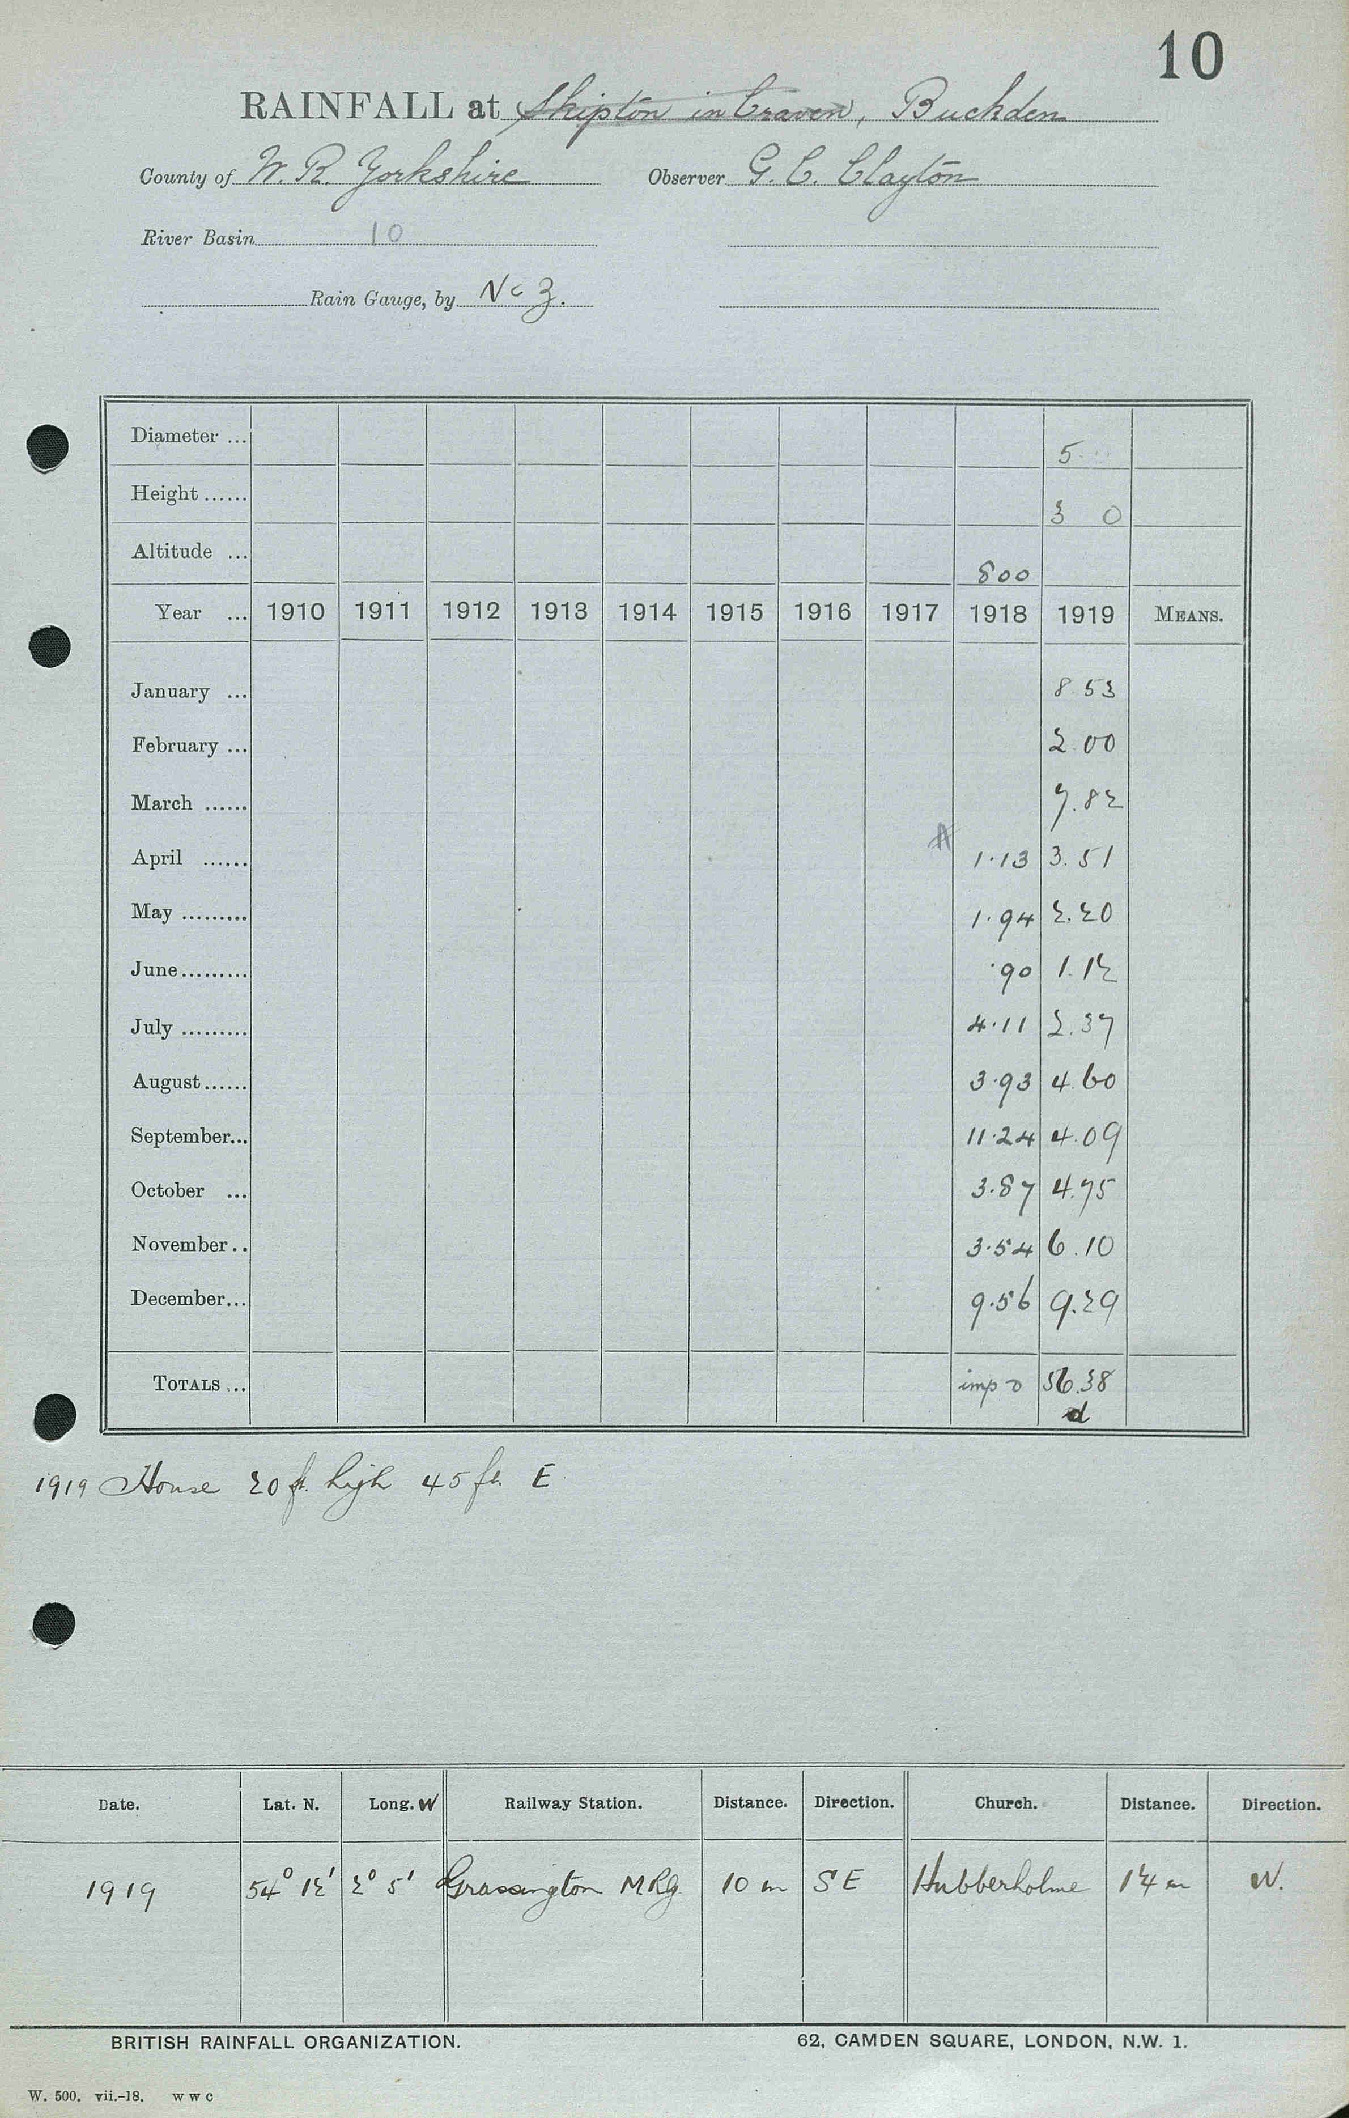 10
RAINFALL at Skipton in Craven, Buckden
County of W. R. Yorkshire Observer G. C. Clayton
River Basin 10
Rain Gauge, by N & Z.
Diameter ... 5
Height ...... 3 0
Altitude ... 800
Year ... 1910 1911 1912 1913 1914 1915 1916 1917 1918 1919 MEANS.
January ... 8 53
February ... 2.00
March ...... 7.82
April ...... A 1.13 3.51
May ......... 1.94 2.20
June......... .90 1.12
July ......... 4.11 2.37
August ...... 3.93 4.60
September... 11.24 4.09
October ... 3.87 4.75
November .. 3.54 6.10
December... 9.56 9.29
TOTALS ... imp 56.38
d
1919 House 20 ft. high 45 ft. E
Date. Lat. N. Long. W Railway Station. Distance. Direction. Church. Distance. Direction.
1919 54° 12' 2° 5' Grassington 10 m S E Hubberholme W.
BRITISH RAINFALL ORGANIZATION. 62, CAMDEN SQUARE, LONDON, N.W. 1.
W. 500. vii.-18. w w c